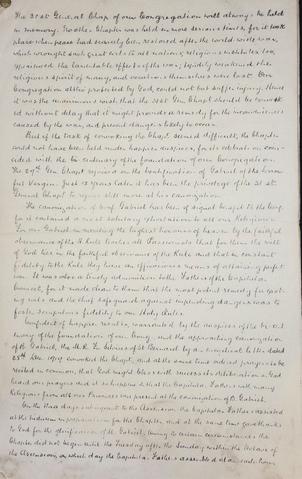 The 31st General Chap of our Congregation will always be held
in memory. No other Chapter was held in more serious times, for it took
place when peace had scarcely been restored after the world wide war,
which wrought such great evils to all nations; religious institutes too,
experienced the lamentable effects of the war; especially weakened the
religious spirit of many, and vocations themselves were lost. Our
Congregation altho protected by God, could not but suffer injury. Hence
it was the unanimous wish that the 31st Gen. Chapt should be convoked
without delay that it might provide a remedy for the inconveniences
caused by the war, and prevent changes likely to occur.
But if the task of convoking the Chapt. seemed difficult, the Chapter
could not have been held under happier auspices, for its celebration coin-
cided with the bi-centenary of the foundation of our Congregation.
The 29th Gen. Chapt rejoiced in the beatification of Gabriel of the Sorrow-
ful Virgin. Just 12 years later it has been the privilege of the 31st
General Chapt. to rejoice still more at his canonization.
The canonization of Conf. Gabriel has been of signal benefit to the Cong.
for it contained a most salutary exhortation to all our Religious.
For our Gabriel in meriting the highest honours of heaven by the faithful
observance of the H. Rule teaches all Passionists that for them the will
of God lies in the faithful observance of the Rule and that in constant
fidelity to the Rule they have an efficacious means of attaining perfect-
ion. It was also a timely admonition to the Fathers of the Capitular
, for it made clear to them that the most potent remedy for exist-
ing evils and the chief safeguard against impending dangers was to
foster scrupulous fidelity to our Holy Rules.
Confident of happier results, warranted by the auspices of the bi-cent
enary of the foundation of our Cong. and the approaching canonization
of B. Gabriel, the M. R. F. Silvius of S. Bernard by an Circular letter dated
25th Dec. 1919 convoked the Chapt. and at the same time advised prayers to be
recited in common, that God might bless with success its deliberations. God
heard our prayers and it so happened that the Capitular Fathers with many
Religious from all our Provinces was present at the canonization of B. Gabriel.
On the three days subsequent to the Ascension, the Capitular Fathers assisted
at the triduum in preparation for the Chapter, and at the same time gave thanks
to God for the glorification of St. Gabriel. Owing to certain circumstances the
Chapter did not begin until the Tuesday after the Sunday within the Octave of
the Ascension, on which day the Capitular Fathers assembled at an early hour